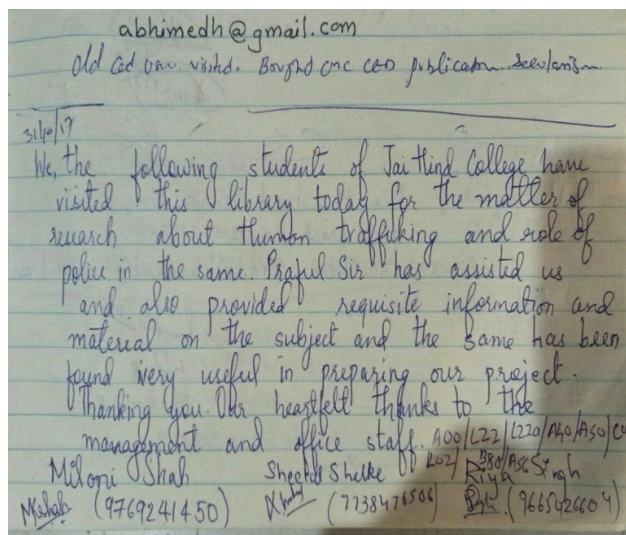 abhimedh@gmail.com
Old Ced visited. Bought one CED publication Secularism
31/10/17
We, the following students of Jai Hind College have
visited this library today for the matter of
research about Human traffuking and role of
police in the same. Praful Sir has assisted us
and also provided requisite information and
material on the subject and the same has been
found very useful in preparing our project.
Thanking you. Our heartfelt thanks to the
management and office staff. A00/L22/L220/A40/A50/
L02/B80/A56
Miloni Shah Sheetal Shelke Riya Singh
MKshah (9769241450) (7738476506) (9665426604)